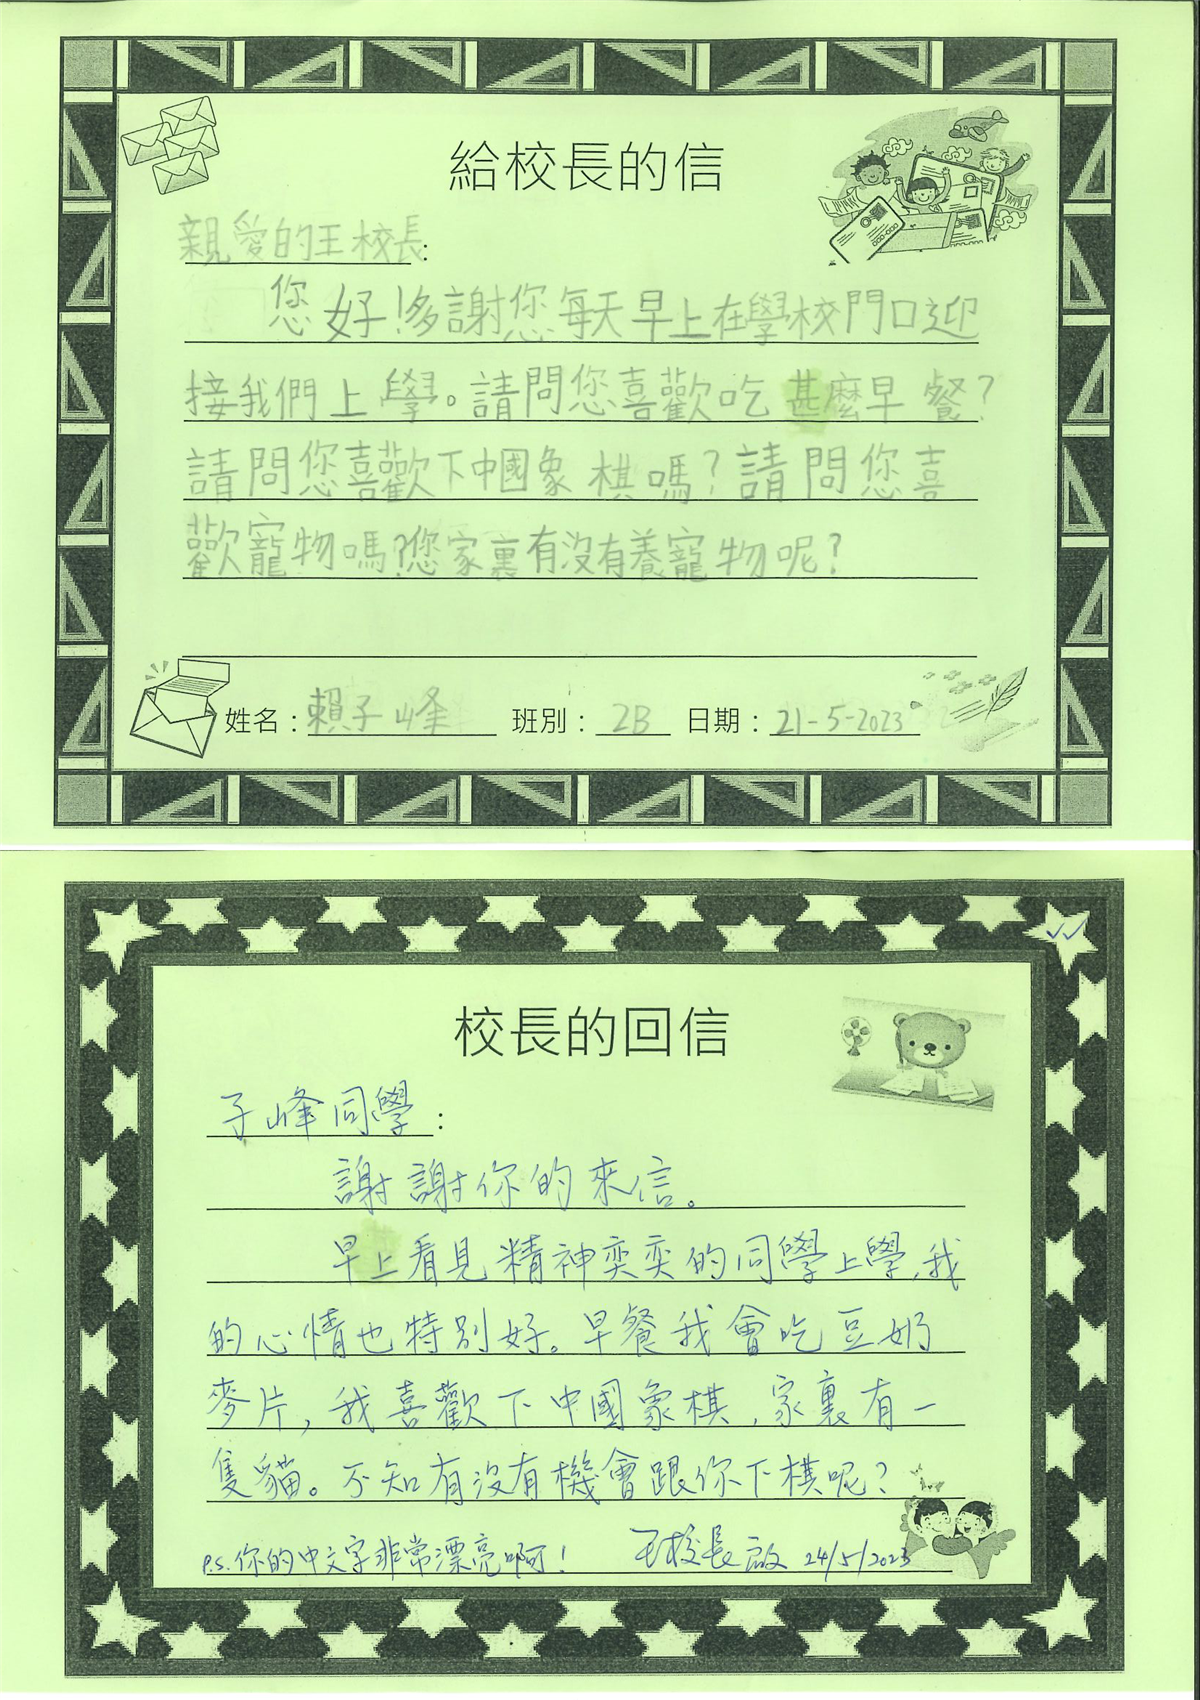 給校長的信
親愛的王校長:
您好!多謝您每天早上在學校門口迎
接我們上學。請問您喜歡吃甚麼早餐?
請問您喜歡下中國象棋嗎?請問您喜
歡寵物嗎?您家裏有沒有養寵物呢?
姓名:賴子峰 班別:2B 日期:21-5-2023
校長的回信
子峰同學:
謝謝你的來信。
早上看見精神奕奕的同學上學,我
的心情也特別好。早餐我會吃豆奶
麥片,我喜歡下中國象棋,家裏有一
隻貓。不知有沒有機會跟你下棋呢?
P.S.你的中文字非常漂亮啊! 王校長啟 24/5/2023